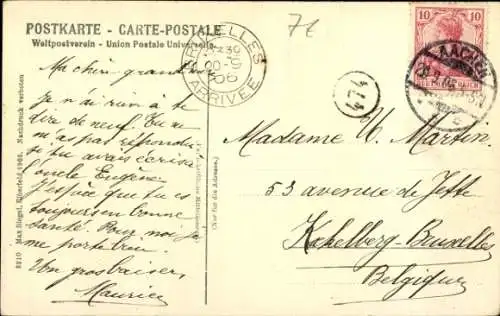 POSTKARTE - CARTE-POSTALE
Weltpostverein - Union Postale Universelle
Ma chère grand'mère
Je n'ai rien à te
dire de neuf. Tu ne
m'as pas répondu
si tu avais écris à
l'oncle Eugène.
J'espère que tu es
toujours en bonne
santé. Pour moi je
me porte bien.
Un gros baiser,
Maurice
8210 Max Biegel, Elberfeld 1905. Nachdruck verboten
BRUXELLES
ARRIVEE
(Nur für die Adresse)
7c
414
10 10
DEUTSCHES REICH
AACHEN
Madame V. Martin.
53 avenue de Jette
Koekelberg-Bruxelles
Belgique